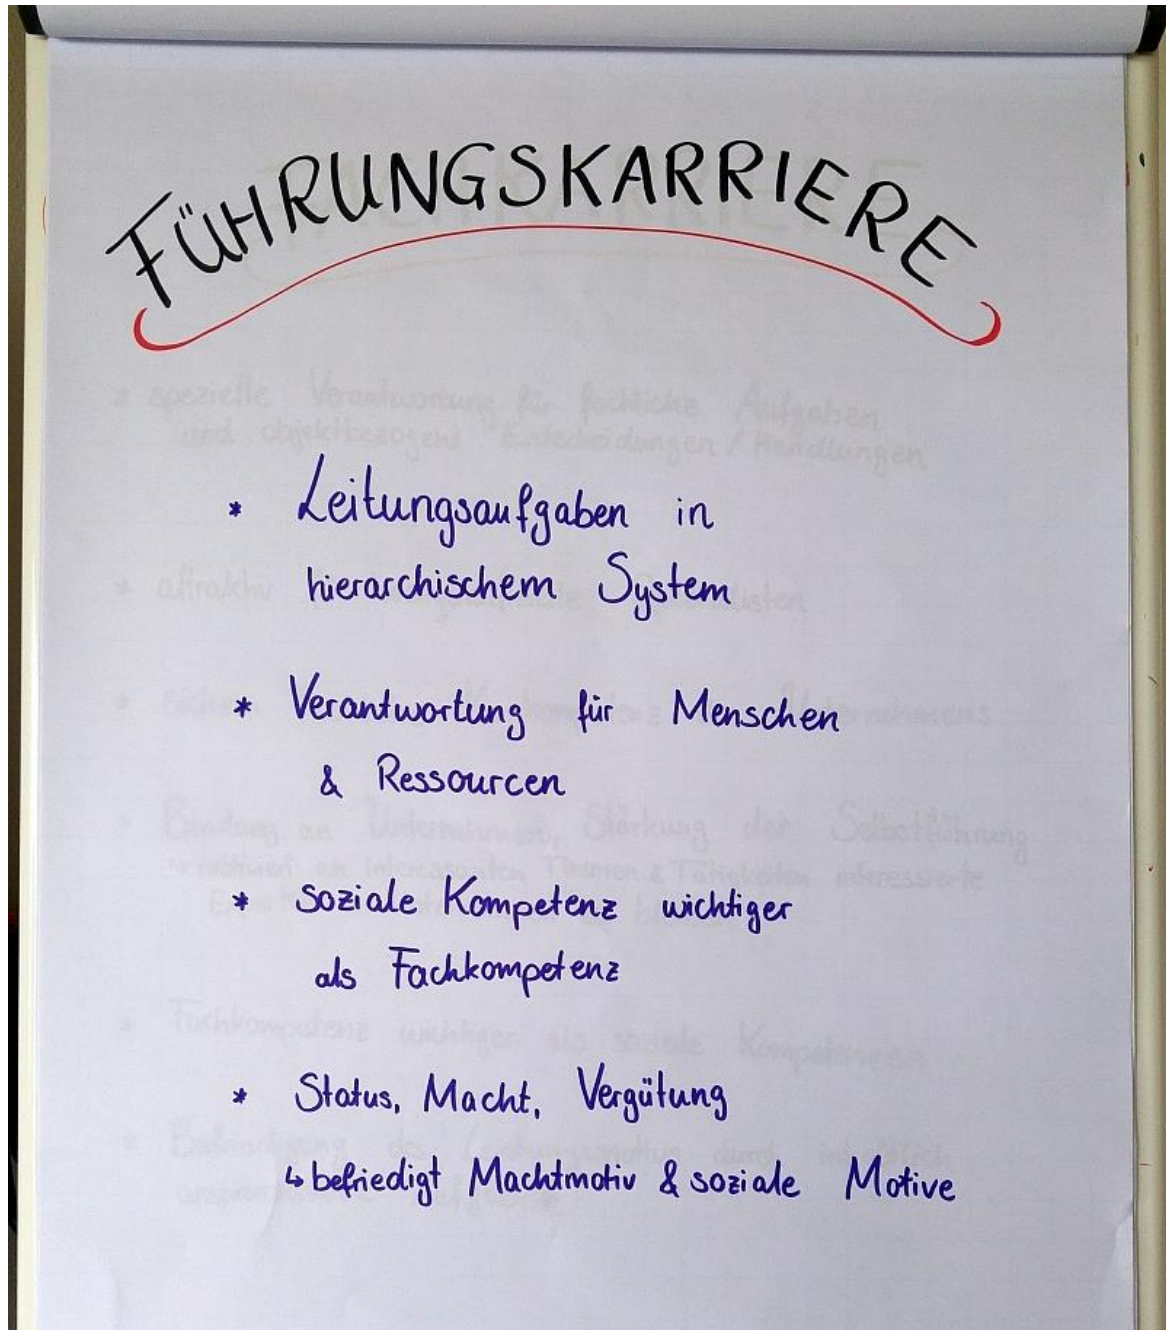 FÜHRUNGSKARRIERE
* Leitungsaufgaben in
hierarchischem System
* Verantwortung für Menschen
& Ressourcen
* soziale Kompetenz wichtiger
als Fachkompetenz
* Status, Macht, Vergütung
↳ befriedigt Machtmotiv & soziale Motive